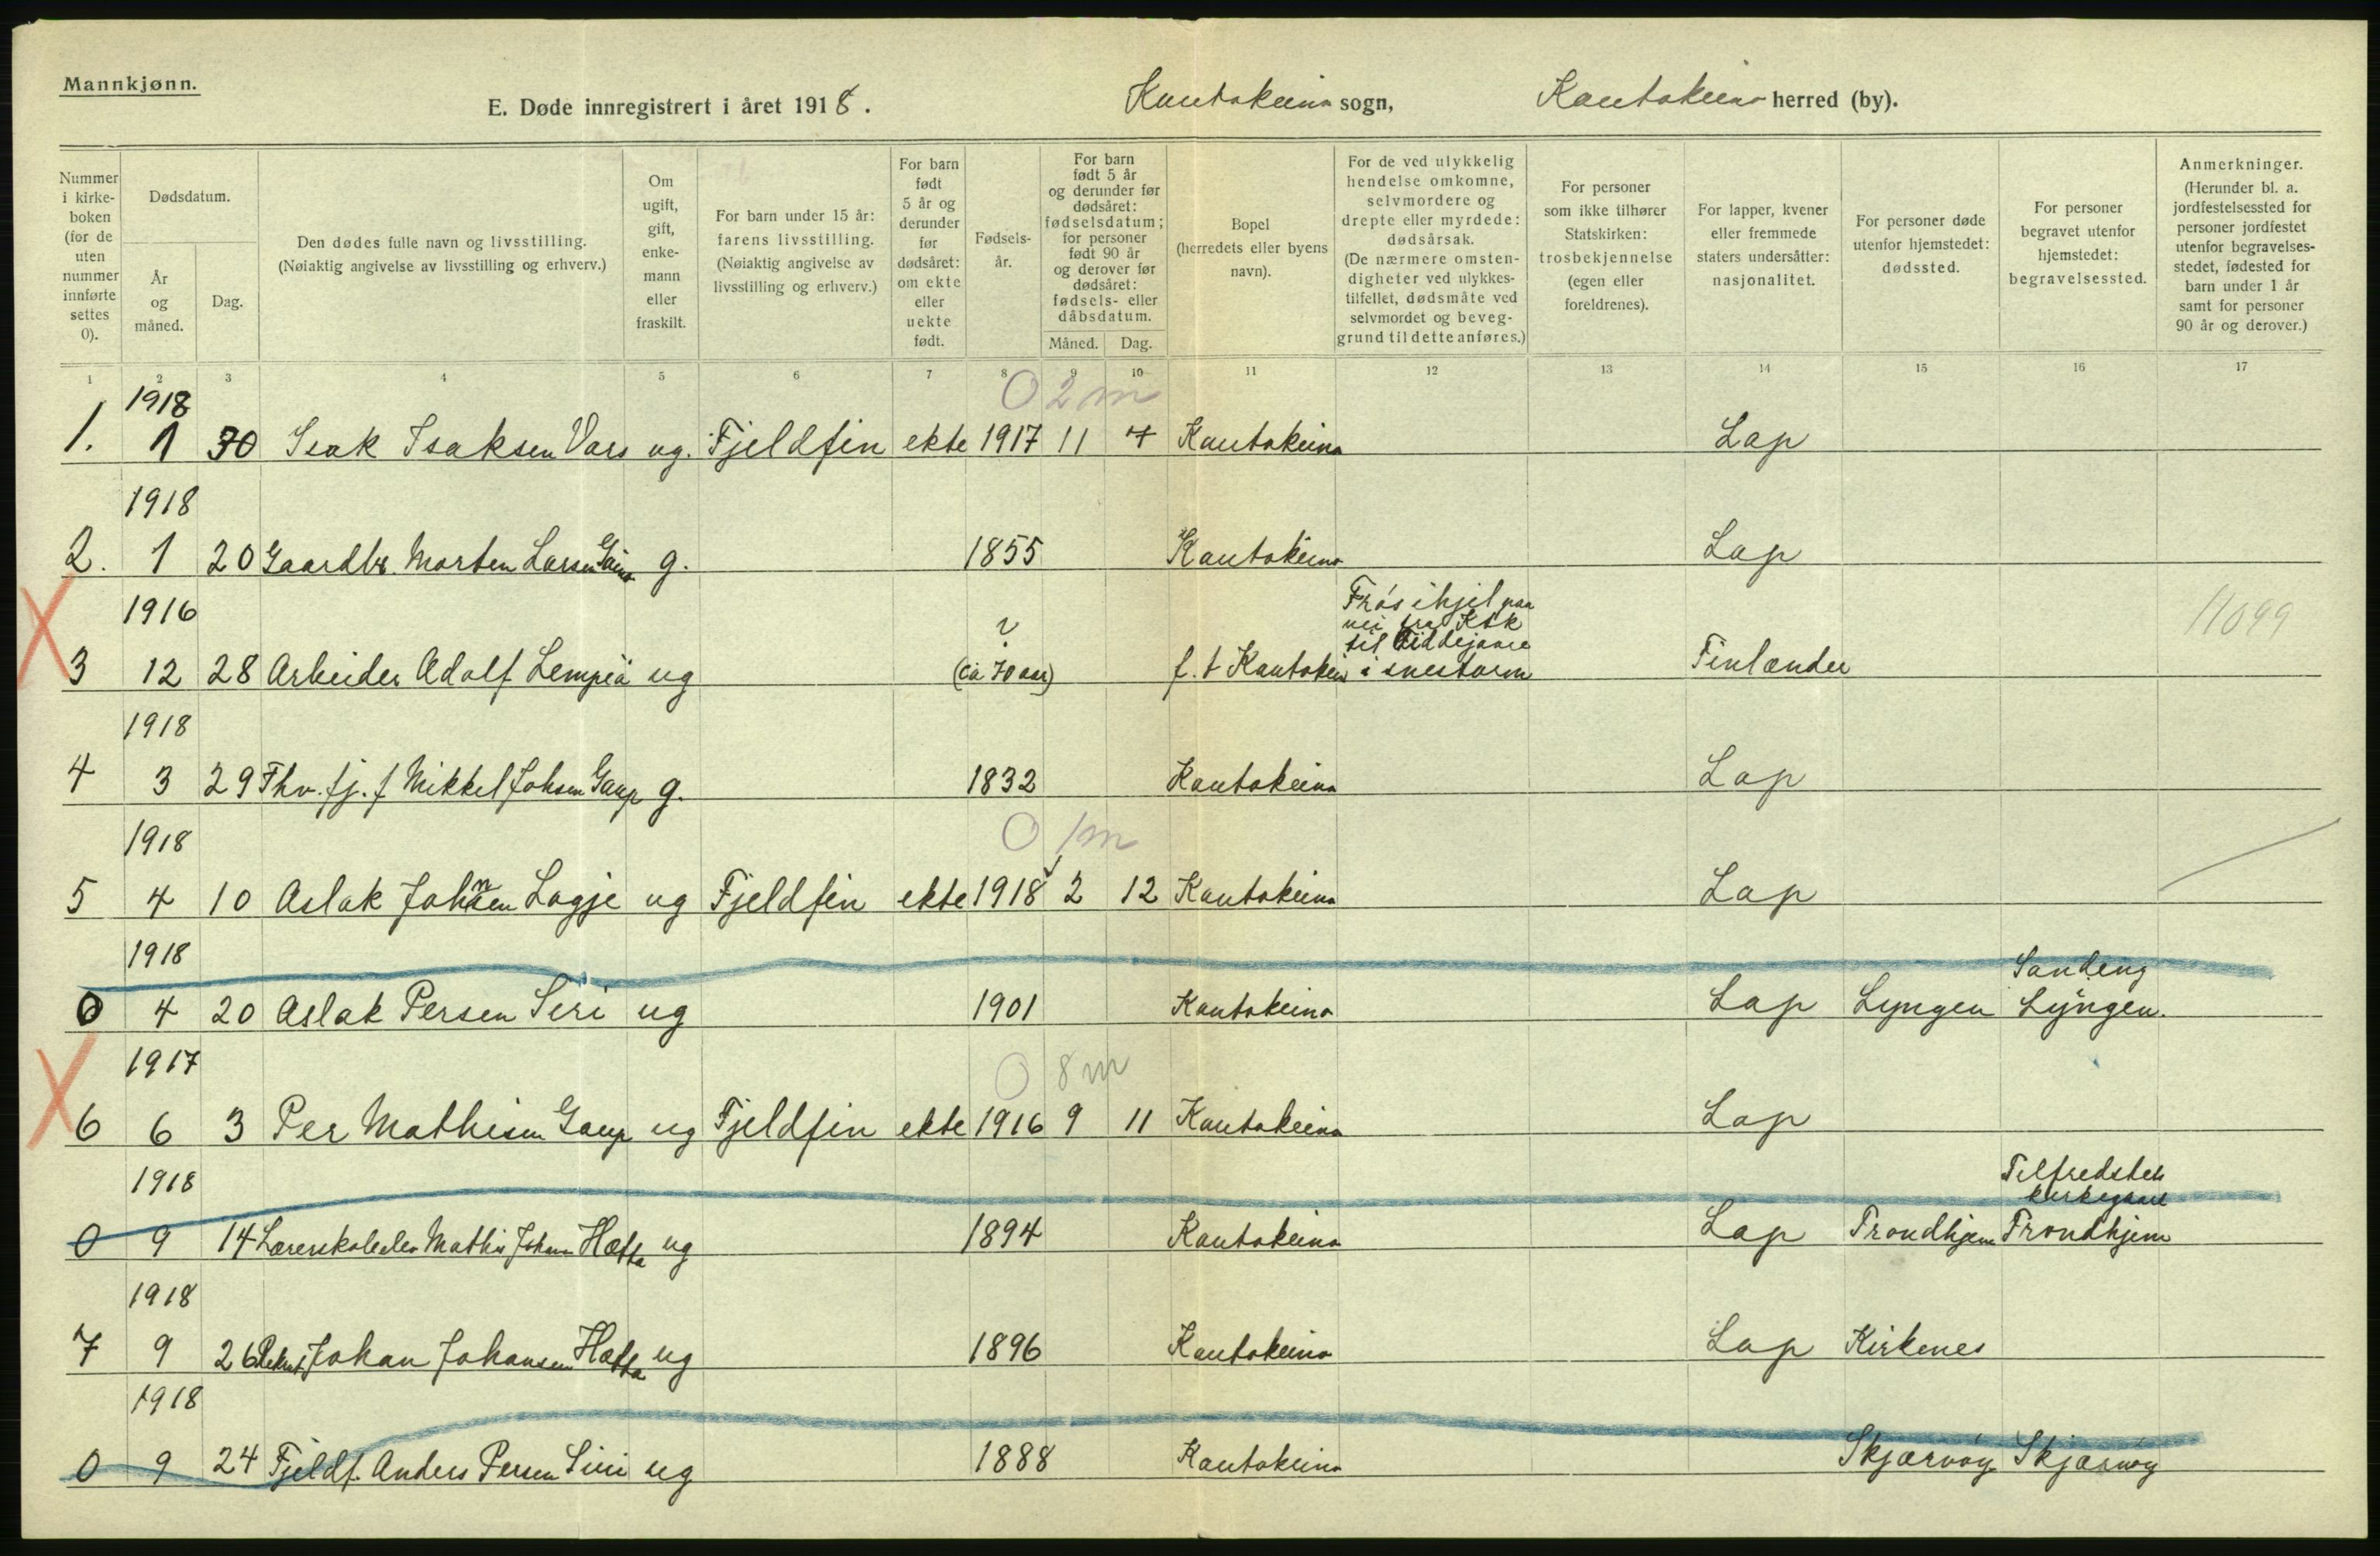 Mannkjønn.
E. Døde innregistrert i året 1918. Kautokeino sogn, Kautokeino herred (by).
Nummer i kirkeboken (for de uten nummer innførte settes 0).
Dødsdatum.
År og måned.
Dag.
Den dødes fulle navn og livsstilling.
(Nøiaktig angivelse av livsstilling og erhverv.)
Om ugift, gift, enkemann eller fraskilt.
For barn under 15 år: farens livsstilling.
(Nøiaktig angivelse av livsstilling og erhverv.)
For barn født 5 år og derunder før dødsåret: om ekte eller uekte født.
Fødselsår.
For barn født 5 år og derunder før dødsåret: fødselsdatum; for personer født 90 år og derover før dødsåret: fødsels- eller dåbsdatum.
Måned. Dag.
Bopel
(herredets eller byens navn).
For de ved ulykkelig hendelse omkomne, selvmordere og drepte eller myrdede: dødsårsak.
(De nærmere omstendigheter ved ulykkestilfellet, dødsmåte ved selvmordet og beveggrund til dette anføres.)
For personer som ikke tilhører Statskirken: trosbekjennelse
(egen eller foreldrenes).
For lapper, kvener eller fremmede staters undersåtter: nasjonalitet.
For personer døde utenfor hjemstedet: dødssted.
For personer begravet utenfor hjemstedet: begravelsessted.
Anmerkninger.
(Herunder bl. a. jordfestelsessted for personer jordfestet utenfor begravelsesstedet, fødested for barn under 1 år samt for personer 90 år og derover.)
1 2 3 4 5 6 7 8 9 10 11 12 13 14 15 16 17
1918 0 2 m
1. 1 30 Isak Isaksen Vars ug. Fjeldfin ekte 1917 11 7 Kautokeino Lap
1918
2. 1 20 Gaardbr. Morten Larsen Gaino g. 1855 Kautokeino Lap
1916 ? Frøs ihjel paa
vei fra Ktk
til
11099
3 12 28 Arbeider Adolf Lempiä ug (ca 70 aar) f. t Kautokein i snestorm Finlænder
1918
4 3 29 Fhv. fj. f Mikkel Johsen Gaup g. 1832 Kautokeino Lap
1918 0 1 m
5 4 10 Aslak Johnsen Logje ug Fjeldfin ekte 1918 2 12 Kautokeino Lap
1918 Sandeng
0 4 20 Aslak Persen Siri ug 1901 Kautokeino Lap Lyngen Lyngen.
1917 0 8 m
6 6 3 Per Mathisen Gaup ug Fjeldfin ekte 1916 9 11 Kautokeino Lap
1918 Tilfredshets
kirkegaard
0 9 14 Lærerskoleelev Mathis Johnsen Hætta ug 1894 Kautokeino Lap Trondhjem Trondhjem
1918
7 9 26 Rekrut Johan Johansen Hætta ug 1896 Kautokeino Lap Kirkenes
1918
0 9 24 Fjeldf. Anders Persen Siri ug 1888 Kautokeino Skjærvøy Skjærvøy